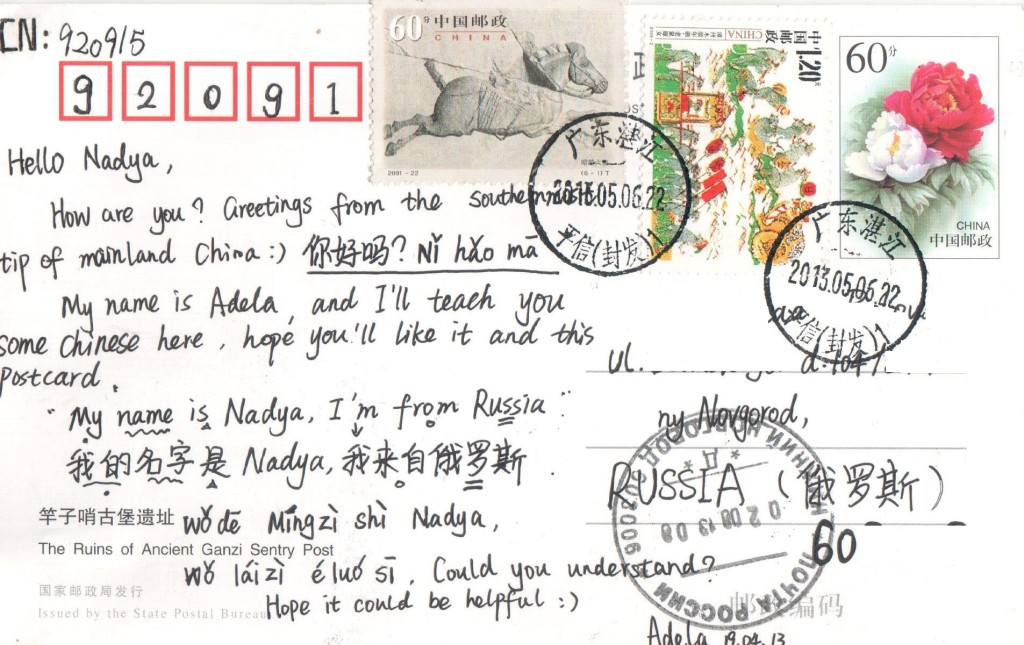 CN: 920915
9 2 0 9 1
60分 中国邮政
CHINA
2001-22
(6-1)T
中国邮政
CHINA
1.20元
60分
CHINA
中国邮政
广东湛江
2013.05.06.22
平信(封发)1
广东湛江
2013.05.06.22
平信(封发)1
Hello Nadya,
How are you? Greetings from the southernmost
tip of mainland China:) 你好吗? Nǐ hǎo mā
My name is Adela, and I'll teach you
some Chinese here, hope you'll like it and this
postcard.
"My name is Nadya, I'm from Russia"
我的名字是 Nadya, 我来自俄罗斯.
wǒ dē Míngzì shì Nadya,
wǒ láizì é luó sī. Could you understand?
Hope it could be helpful :)
Adela 19.04.13
竿子哨古堡遗址
The Ruins of Ancient Ganzi Sentry Post
国家邮政局发行
Issued by the State Postal Bureau
ul.
ny Novgorod,
RUSSIA (俄罗斯)
60
ПОЧТА РОССИИ НИЖНИЙ НОВГОРОД
邮政编码